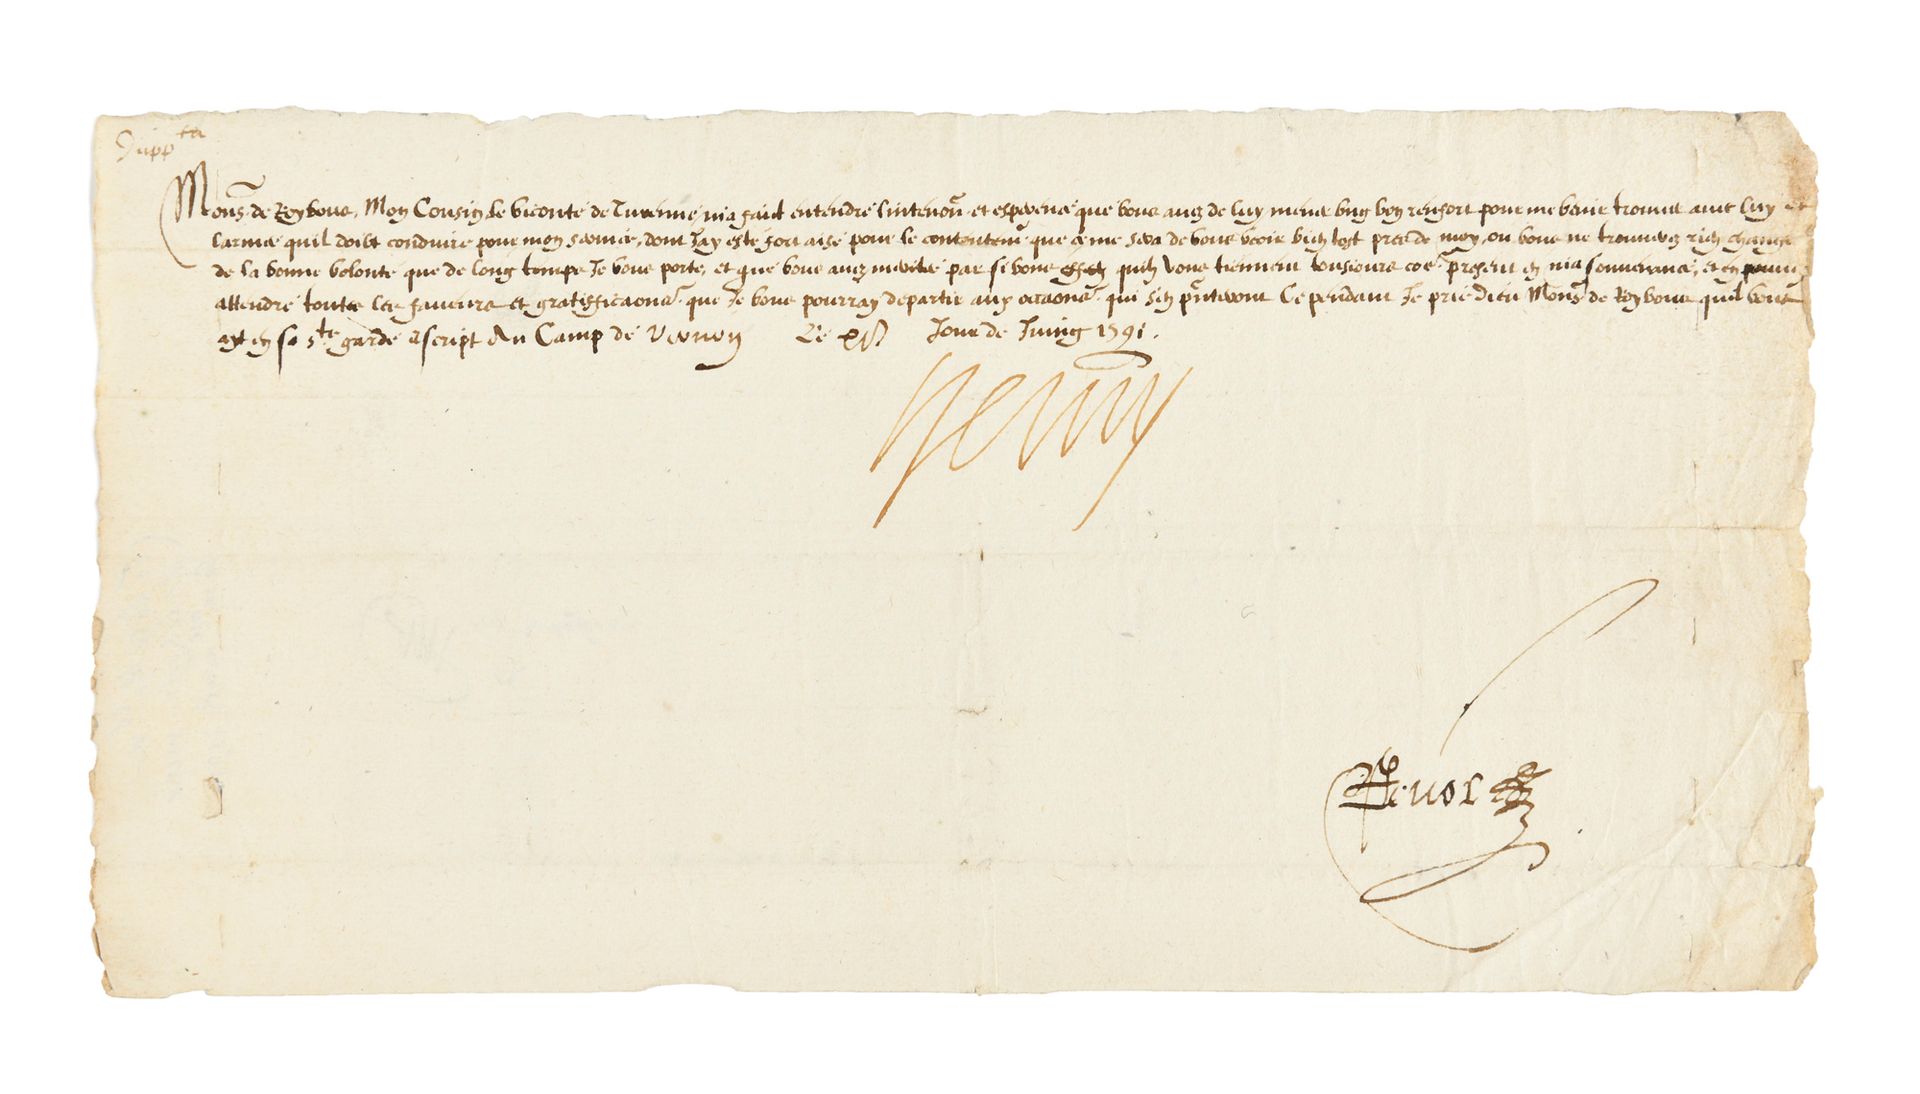 Dupp^ta
Mons^r de Roybous, Mon Cousin le Viconte de Turenne, m'a faict entendre l'intention et esperence que vous avez de luy mener ung bon renfort pour me venir trouver avec luy et
l'armee qu'il doibt conduire pour mon service, dont J'ay esté fort aise pour le contentem^t que ce me sera de vous veoir bien tost pres de moy, ou vous ne trouverez rien changé
de la bonne volonté que de long temps Je vous porte, et que vous avez meritée par si bons qu'ilz vous tiennent tousiours co^e present en ma souvenance, et en pouvez
attendre toutes les faveurs et gratifficaons que Je vous pourray departir aux occaons qui s'en p^nteront Cependant Je prie Dieu Mons^r de Roybous qu'il vous
ayt en sa s^te garde escript Au Camp de Vernon Le Jour de Juing 1591.
Henry
Revol